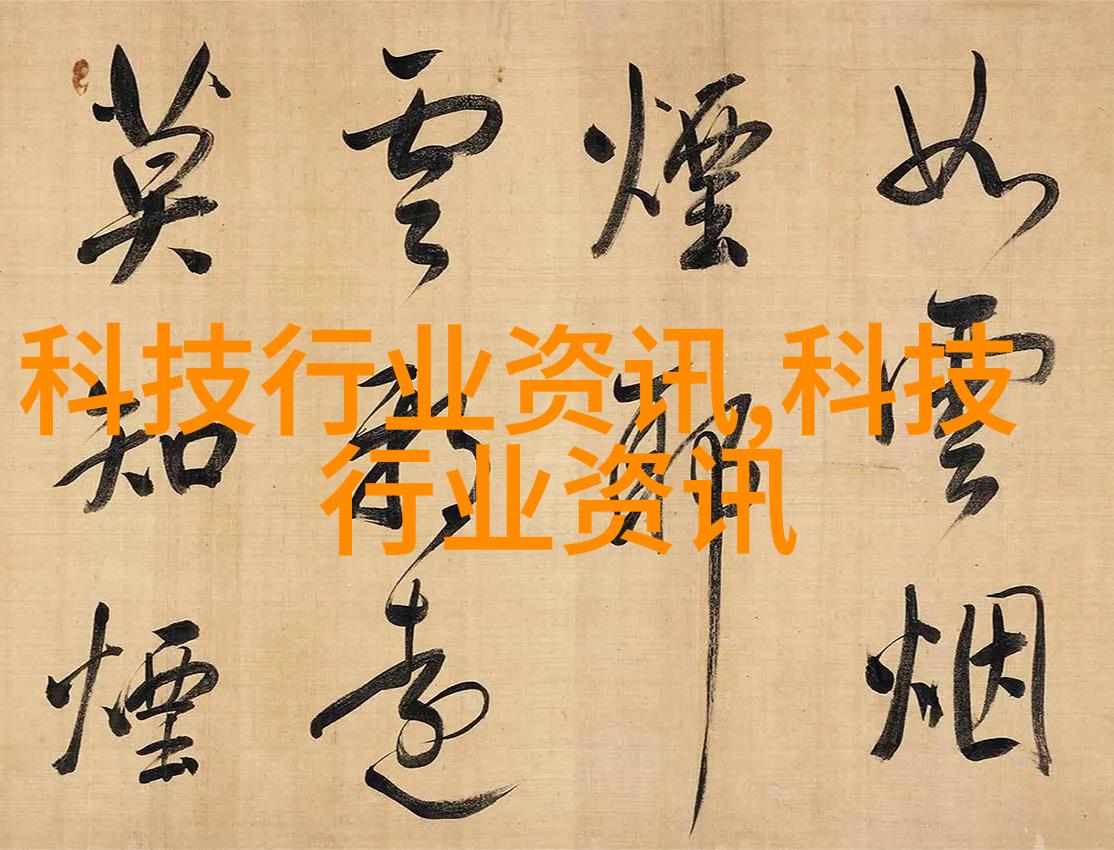 科技行业资讯,科技
行业资讯
如雲烟
煙
雲遠
莫知煙